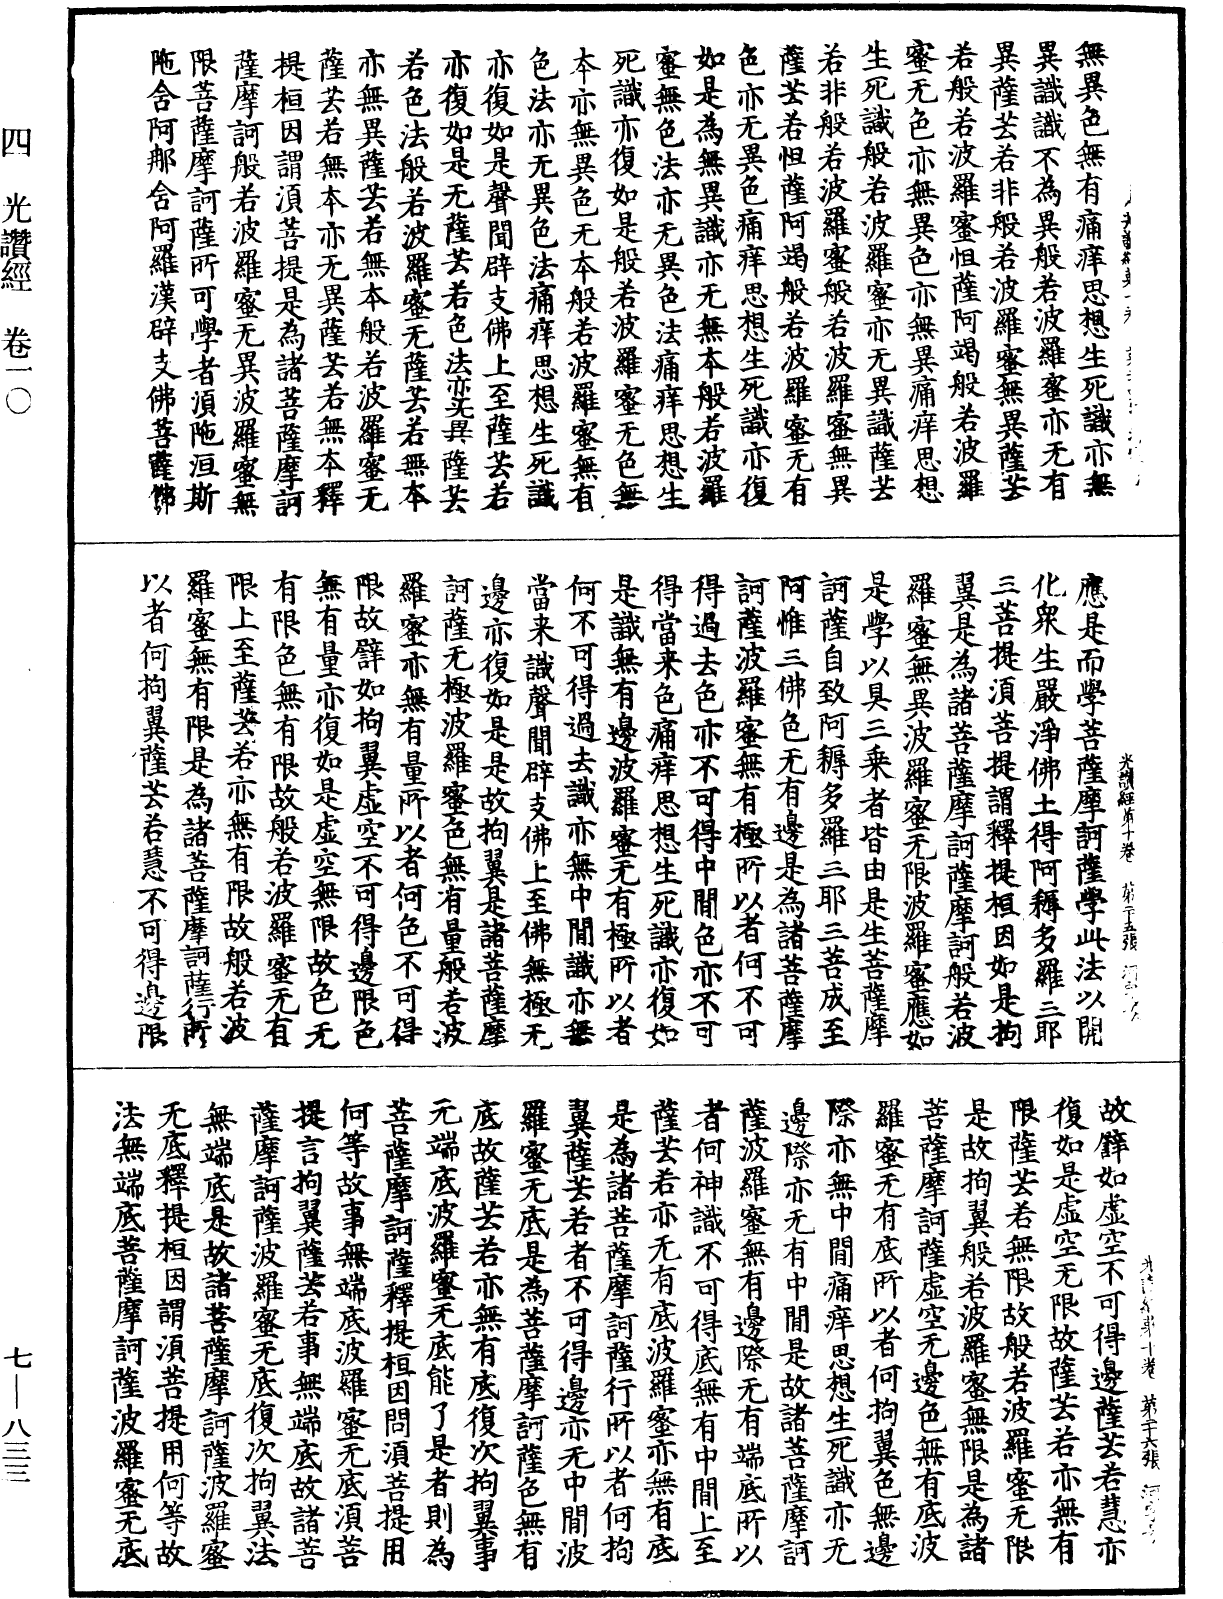 無異色無有痛痒思想生死識亦無
異識識不為異般若波羅蜜亦无有
異薩芸若非般若波羅蜜無異薩芸
若般若波羅蜜怛薩阿竭般若波羅
蜜无色亦無異色亦無異痛痒思想
生死識般若波羅蜜亦无異識薩芸
若非般若波羅蜜般若波羅蜜無異
薩芸若怛薩阿竭般若波羅蜜无有
色亦无異色痛痒思想生死識亦復
如是為無異識亦无無本般若波羅
蜜無色法亦无異色法痛痒思想生
死識亦復如是般若波羅蜜无色無
本亦無異色无本般若波羅蜜無有
色法亦无異色法痛痒思想生死識
亦復如是聲聞辟支佛上至薩芸若
亦復如是无薩芸若色法亦无異薩芸
若色法般若波羅蜜无薩芸若無本
亦無異薩芸若無本般若波羅蜜无
薩芸若無本亦无異薩芸若無本釋
提桓因謂須菩提是為諸菩薩摩訶
薩摩訶般若波羅蜜无異波羅蜜無
限菩薩摩訶薩所可學者須陁洹斯
陁含阿那含阿羅漢辟支佛菩薩佛
應是而學菩薩摩訶薩學此法以開
化衆生嚴淨佛土得阿耨多羅三耶
三菩提須菩提謂釋提桓因如是拘
翼是為諸菩薩摩訶薩摩訶般若波
羅蜜無異波羅蜜无限波羅蜜應如
是學以具三乘者皆由是生菩薩摩
訶薩自致阿耨多羅三耶三菩成至
阿惟三佛色无有邊是為諸菩薩摩
訶薩波羅蜜無有極所以者何不可
得過去色亦不可得中間色亦不可
得當来色痛痒思想生死識亦復如
是識無有邊波羅蜜无有極所以者
何不可得過去識亦無中間識亦無
當来識聲聞辟支佛上至佛無極无
邊亦復如是是故拘翼是諸菩薩摩
訶薩无極波羅蜜色無有量般若波
羅蜜亦無有量所以者何色不可得
限故辟如拘翼虛空不可得邊限色
無有量亦復如是虛空無限故色无
有限色無有限故般若波羅蜜无有
限上至薩芸若亦無有限故般若波
羅蜜無有限是為諸菩薩摩訶薩行所
以者何拘翼薩芸若慧不可得邊限
故辟如虛空不可得邊薩芸若慧亦
復如是虛空无限故薩芸若亦無有
限薩芸若無限故般若波羅蜜无限
是故拘翼般若波羅蜜無限是為諸
菩薩摩訶薩虛空无邊色無有底波
羅蜜无有底所以者何拘翼色無邊
際亦無中間痛痒思想生死識亦无
邊際亦无有中間是故諸菩薩摩訶
薩波羅蜜無有邊際无有端底所以
者何神識不可得底無有中間上至
薩芸若亦无有底波羅蜜亦無有底
是為諸菩薩摩訶薩行所以者何拘
翼薩芸若者不可得邊亦无中間波
羅蜜无底是為菩薩摩訶薩色無有
底故薩芸若亦無有底復次拘翼事
无端底波羅蜜无底能了是者則為
菩薩摩訶薩釋提桓因問須菩提用
何等故事無端底波羅蜜无底須菩
提言拘翼薩芸若事無端底故諸菩
薩摩訶薩波羅蜜无底復次拘翼法
無端底是故諸菩薩摩訶薩波羅蜜
无底釋提桓因謂須菩提用何等故
法無端底菩薩摩訶薩波羅蜜无底
光讚經第十卷 第二十五張
光讚經第十卷 第二十六張
四 光讚經 卷一〇
七—八三三